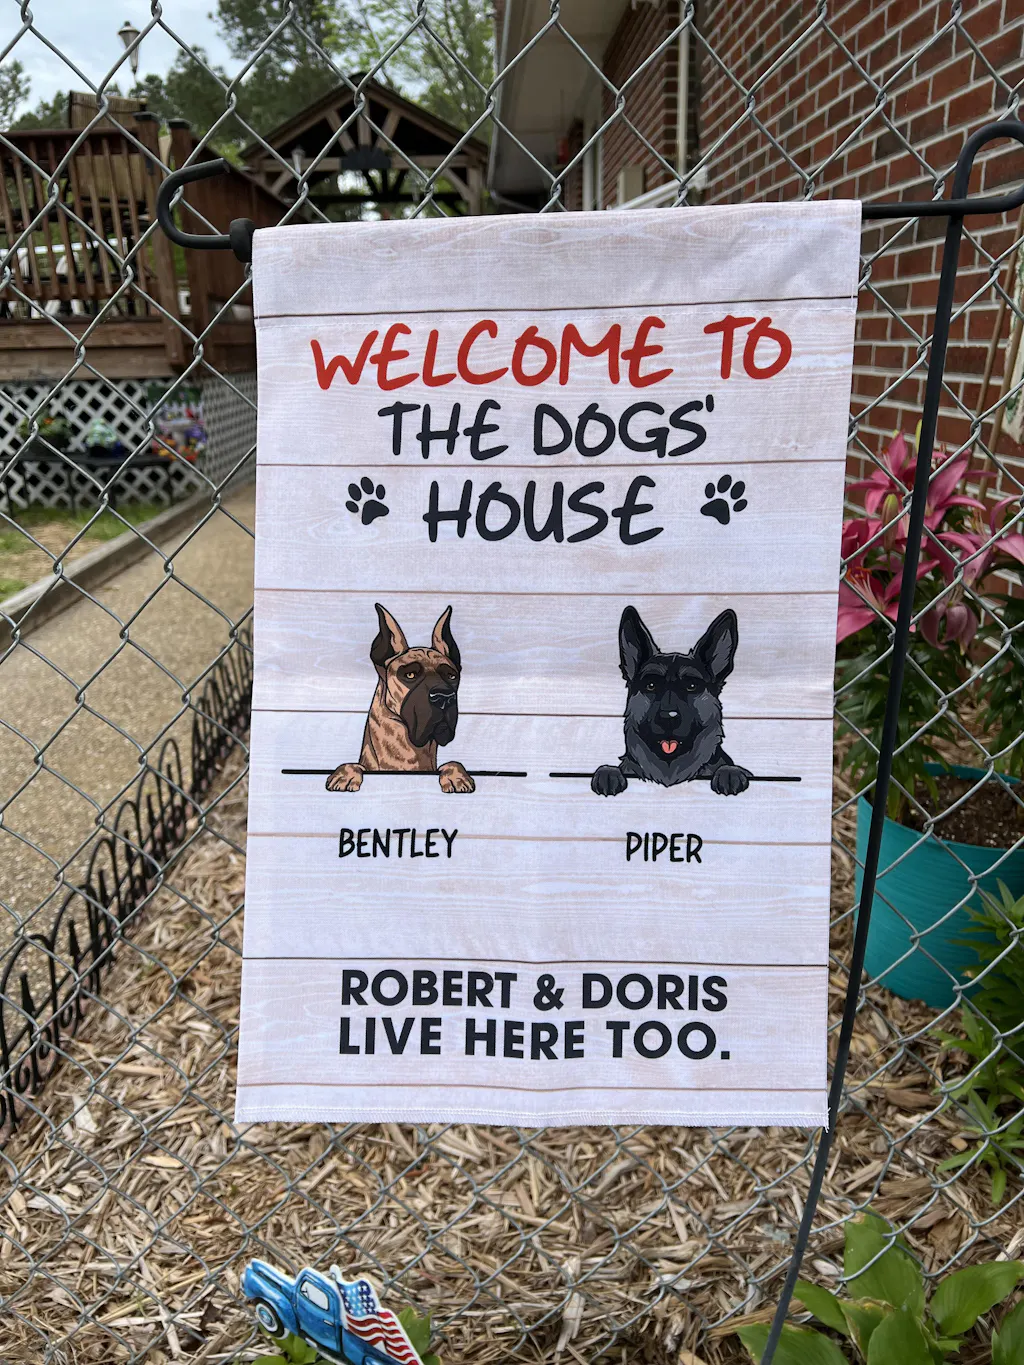 WELCOME TO
THE DOGS'
HOUSE
BENTLEY PIPER
ROBERT & DORIS
LIVE HERE TOO.